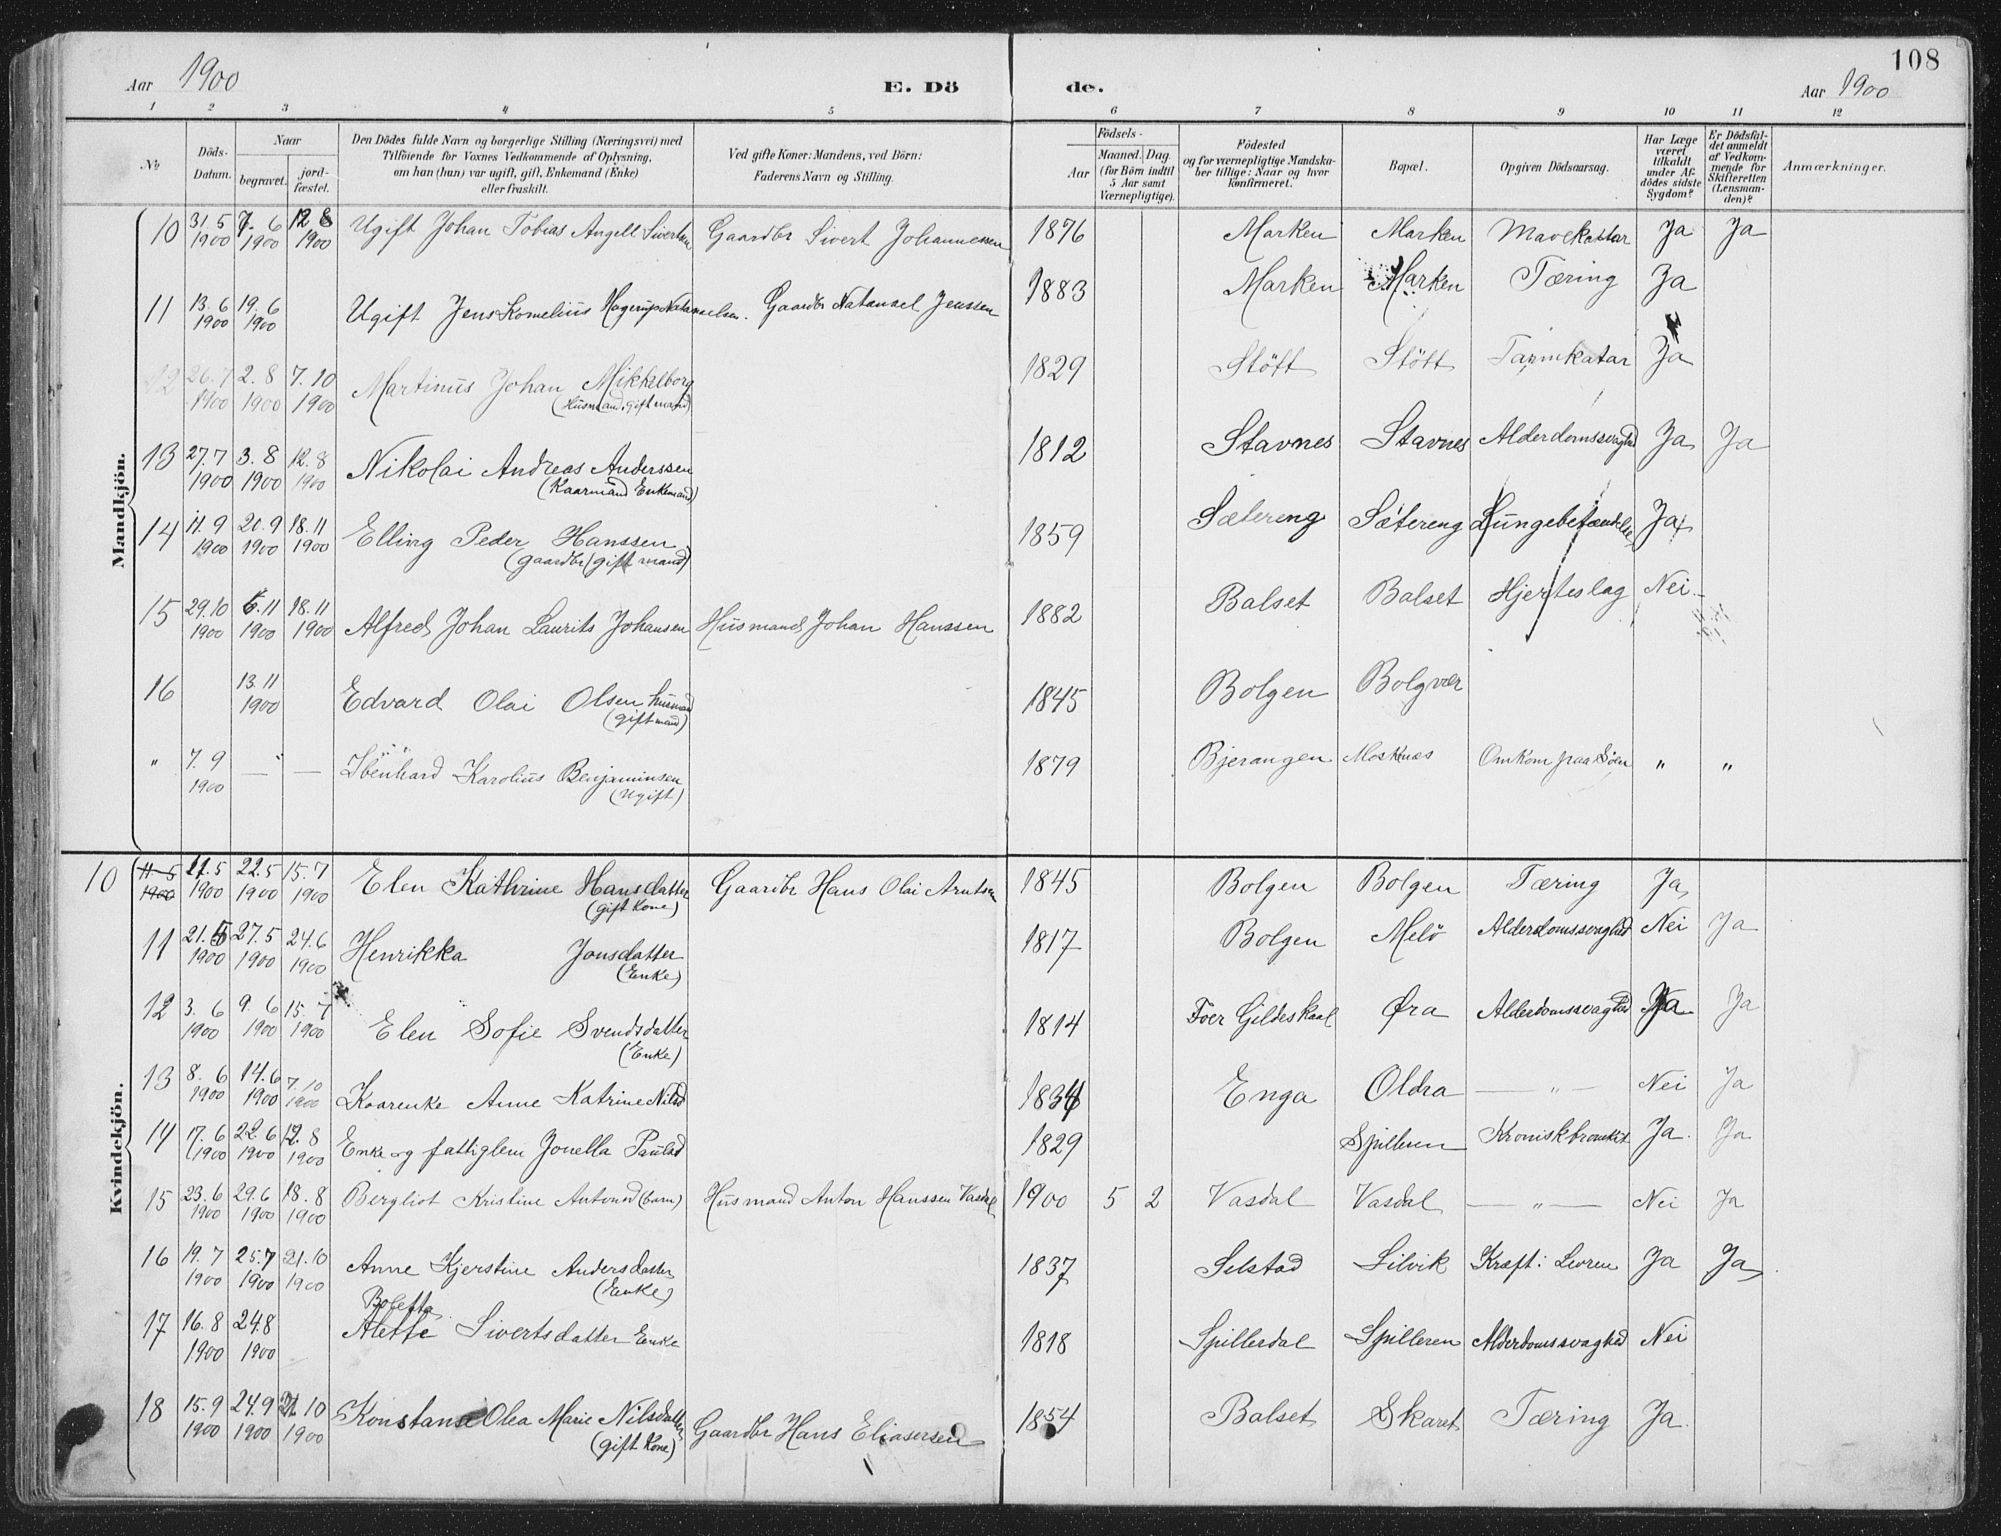 108
Aar 1900 E. Dö de. Aar 1900
1 2 3 4 5 6 7 8 9 10 11 12
No
Döds-Datum.
Naar
begravet.
jord-fæstet.
Den Dödes fulde Navn og borgerlige Stilling (Næringsvei) med
Tilföiende for Voxnes Vedkommende af Oplysning,
om han (hun) var ugift, gift, Enkemand (Enke)
eller fraskilt.
Ved gifte Koner: Mandens, ved Börn:
Faderens Navn og Stilling.
Födsels-
Aar
Maaned. Dag.
(for Börn indtil
5 Aar samt
Værnepligtige).
Födested
og for værnepligtige Mandska-
ber tillige: Naar og hvor
konfirmeret.
Bopæl.
Opgiven Dödsaarsag.
Har Læge
været
tilkaldt
under Af-
dödes sidste
Sygdom?
Er Dödsfal-
det anmeldt
af Vedkom-
mende for
Skifteretten
(Lensman-
den)?
Anmærkninger.
Mandkjön.
10 31.5 1900 7.6 1900 12 8 1900 Ugift Johan Tobias Angell Sivertsen Gaardbr Sivert Johannessen 1876 Marken Marken Mavekattar Ja Ja
11 13.6 1900 19.6 1900 Ugift Jens Kornelius Hagerup Natanaelsen. Gaardbr Natanael Jenssen 1883 Marken Marken Tæring Ja
12 26.7 1900 2.8 1900 7.10 1900 Martinus Johan Mikkelborg (Husmand, gift mand) 1829 Stött Stött Tarmkatar Ja
13 27.7 1900 3.8 1900 12.8 1900 Nikolai Andreas Anderssen (Kaarmand Enkemand) 1812 Stavnes Stavnes Alderdomssvaghed Ja Ja
14 11.9 1900 20.9 1900 18.11 1900 Elling Peder Hanssen (gaardbr/gift mand) 1859 Sætereng Sætereng Lungebetændelse Ja
15 29.10 1900 6.11 1900 18.11 1900 Alfred Johan Laurits Johansen Husmand Johan Hanssen 1882 Balset Balset Hjerteslag Nei
16 13.11 1900 Edvard Olai Olsen husmand (gift mand) 1845 Bolgen Bolgvær
" 7.9 1900 — — Ibenhard Karolius Benjaminsen (Ugift) 1879 Bjerangen Mosknes Omkom paa Söen " "
Kvindekjön.
10 11 5 1900 11.5 1900 22.5 1900 15.7 1900 Elen Kathrine Hansdatter (gift Kone) Gaardbr Hans Olai Arntsen 1845 Bolgen Bolgen Tæring Ja
11 21.5 1900 27.5 1900 24.6 1900 Henrikka Jonsdatter (Enke) 1817 Bolgen Melö Alderdomssvaghed Nei Ja
12 3.6 1900 9.6 1900 15.7 1900 Elen Sofie Svendsdatter (Enke) 1814 Foer Gildeskaal Øra Alderdomssvaghed Ja Ja
13 8.6 1900 14.6 1900 7.10 1900 Kaarenke Anne Katrine Nilsd 1834 Enga Oldra — " — Nei Ja
14 17.6 1900 22.6 1900 12.8 1900 Enke og fattiglem Jonella Paulsd 1829 Spilleren Kroniskbronkit Ja Ja
15 23.6 1900 29.6 1900 18.8 1900 Bergliot Kristine Antonsd (barn) Husmand Anton Hanssen Vasdal 1900 5 2 Vasdal Vasdal — " — Nei Ja
16 19.7 1900 25.7 1900 21.10 1900 Anne Kjerstine Andersdatter (Enke) 1837 Selstad Silvik Kræft i Levren Ja Ja
17 16.8 1900 24.8 1900 Boletta Alette Sivertsdatter Enke 1818 Spillerdal Spilleren Alderdomssvaghed Nei
18 15.9 1900 24.9 1900 21.10 1900 Konstanse Olea Marie Nilsdatter (gift Kone) Gaardbr Hans Eliasersen 1854 Balset Skaret Tæring Ja